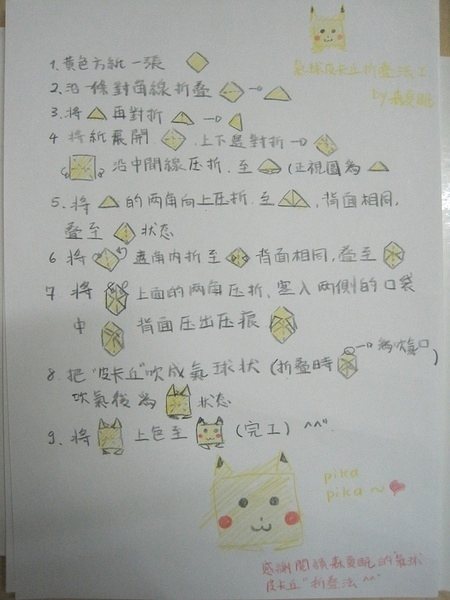 氣球皮卡丘折疊法I
by 森夏眠
1. 黃色方紙一張
2. 沿一條對角線折疊
3. 將 再對折
4 將紙展開 , 上下邊對折
沿中間線压折, 至 (正視圖為
5. 將 的两角向上压折. 至 , 背面相同,
疊至 狀态
6 將 邊角内折至 背面相同, 疊至
7 將 上面的两角压折, 塞入两側的口袋
中 背面压出压痕
8. 把"皮卡丘"吹成氣球狀 (折叠時 為吹氣口)
吹氣後為 狀态
9. 將 上色至 (完工) ^^".
pika
pika~
感謝閱讀森夏眠的"氣球
皮卡丘"折疊法^^